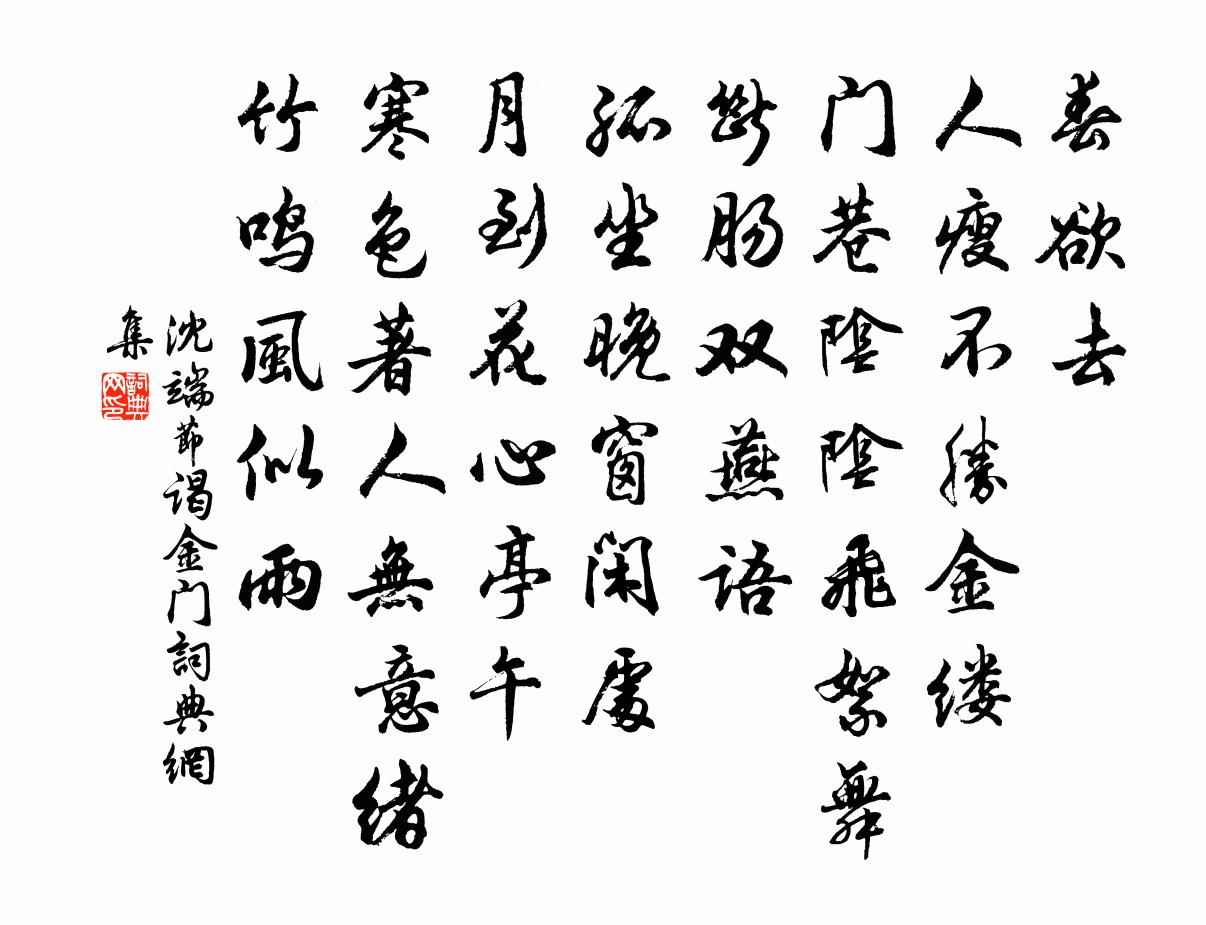 春欲去
人瘦不勝金缕
门巷陰陰飛絮舞
斷肠双燕语
孤坐晚窗闲處
月到花心亭午
寒色著人無意绪
竹鸣風似雨
沈端節谒金门詞典網
集
詞典
网印